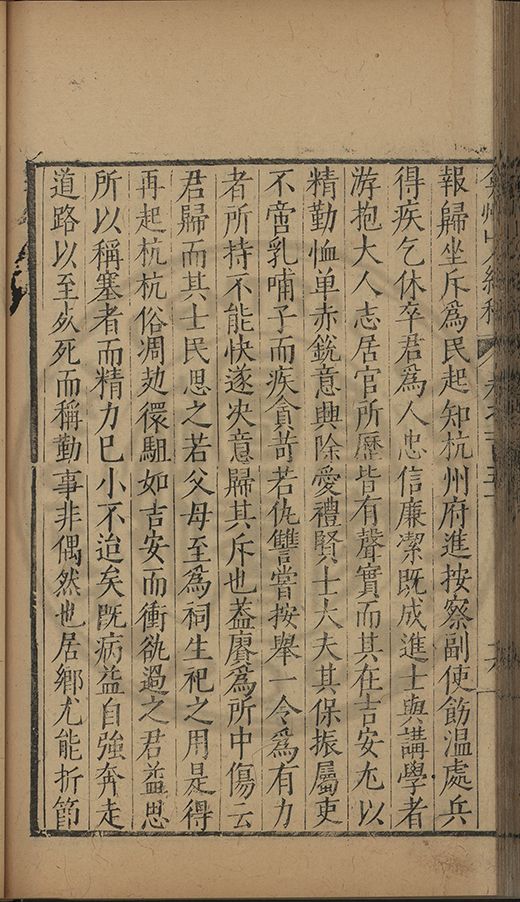 弇州山人續稿 卷之一百五十 六
報歸坐斥爲民起知杭州府進按察副使飭溫處兵
得疾乞休卒君爲人忠信廉潔既成進士與講學者
游抱大人志居官所歷皆有聲實而其在吉安尤以
精勤恤单赤銳意興除愛禮賢士大夫其保振屬吏
不啻乳哺子而疾貪苛若仇讐嘗按舉一令爲有力
者所持不能快遂决意歸其斥也葢賡爲所中傷云
君歸而其士民思之若父母至爲祠生祀之用是得
再起杭杭俗凋攰猾駔如吉安而衝欲過之君益思
所以稱塞者而精力巳小不逮矣既病益自強奔走
道路以至於死而稱勤事非偶然也居鄉尤能折節